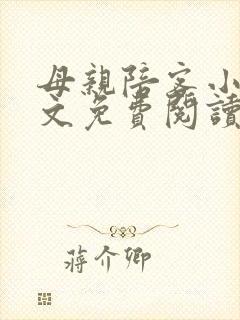 母親陪客小
文免費閱讀
蔣介卿